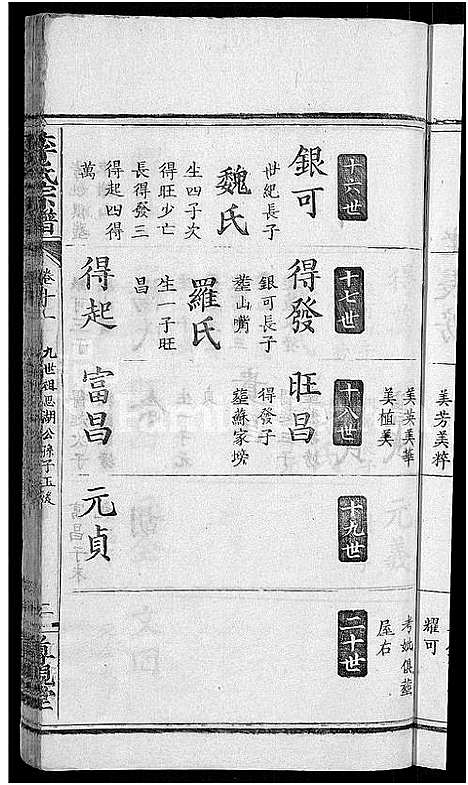 美芳美粹
耀可
美英美華
美植美
考妣俱塟
屋右
十六世
十七世
十八世
十九世
二十世
銀可
世紀長子
魏氏
生四子次
得旺少亡
長得發三
得起四得
萬
得發
銀可長子
塟山嘴
羅氏
生一子旺
昌
得起
旺昌
得發子
塟蘇家塝
富昌
元貞
李氏宗譜
卷十一
九世祖思湖公孫子玉溪